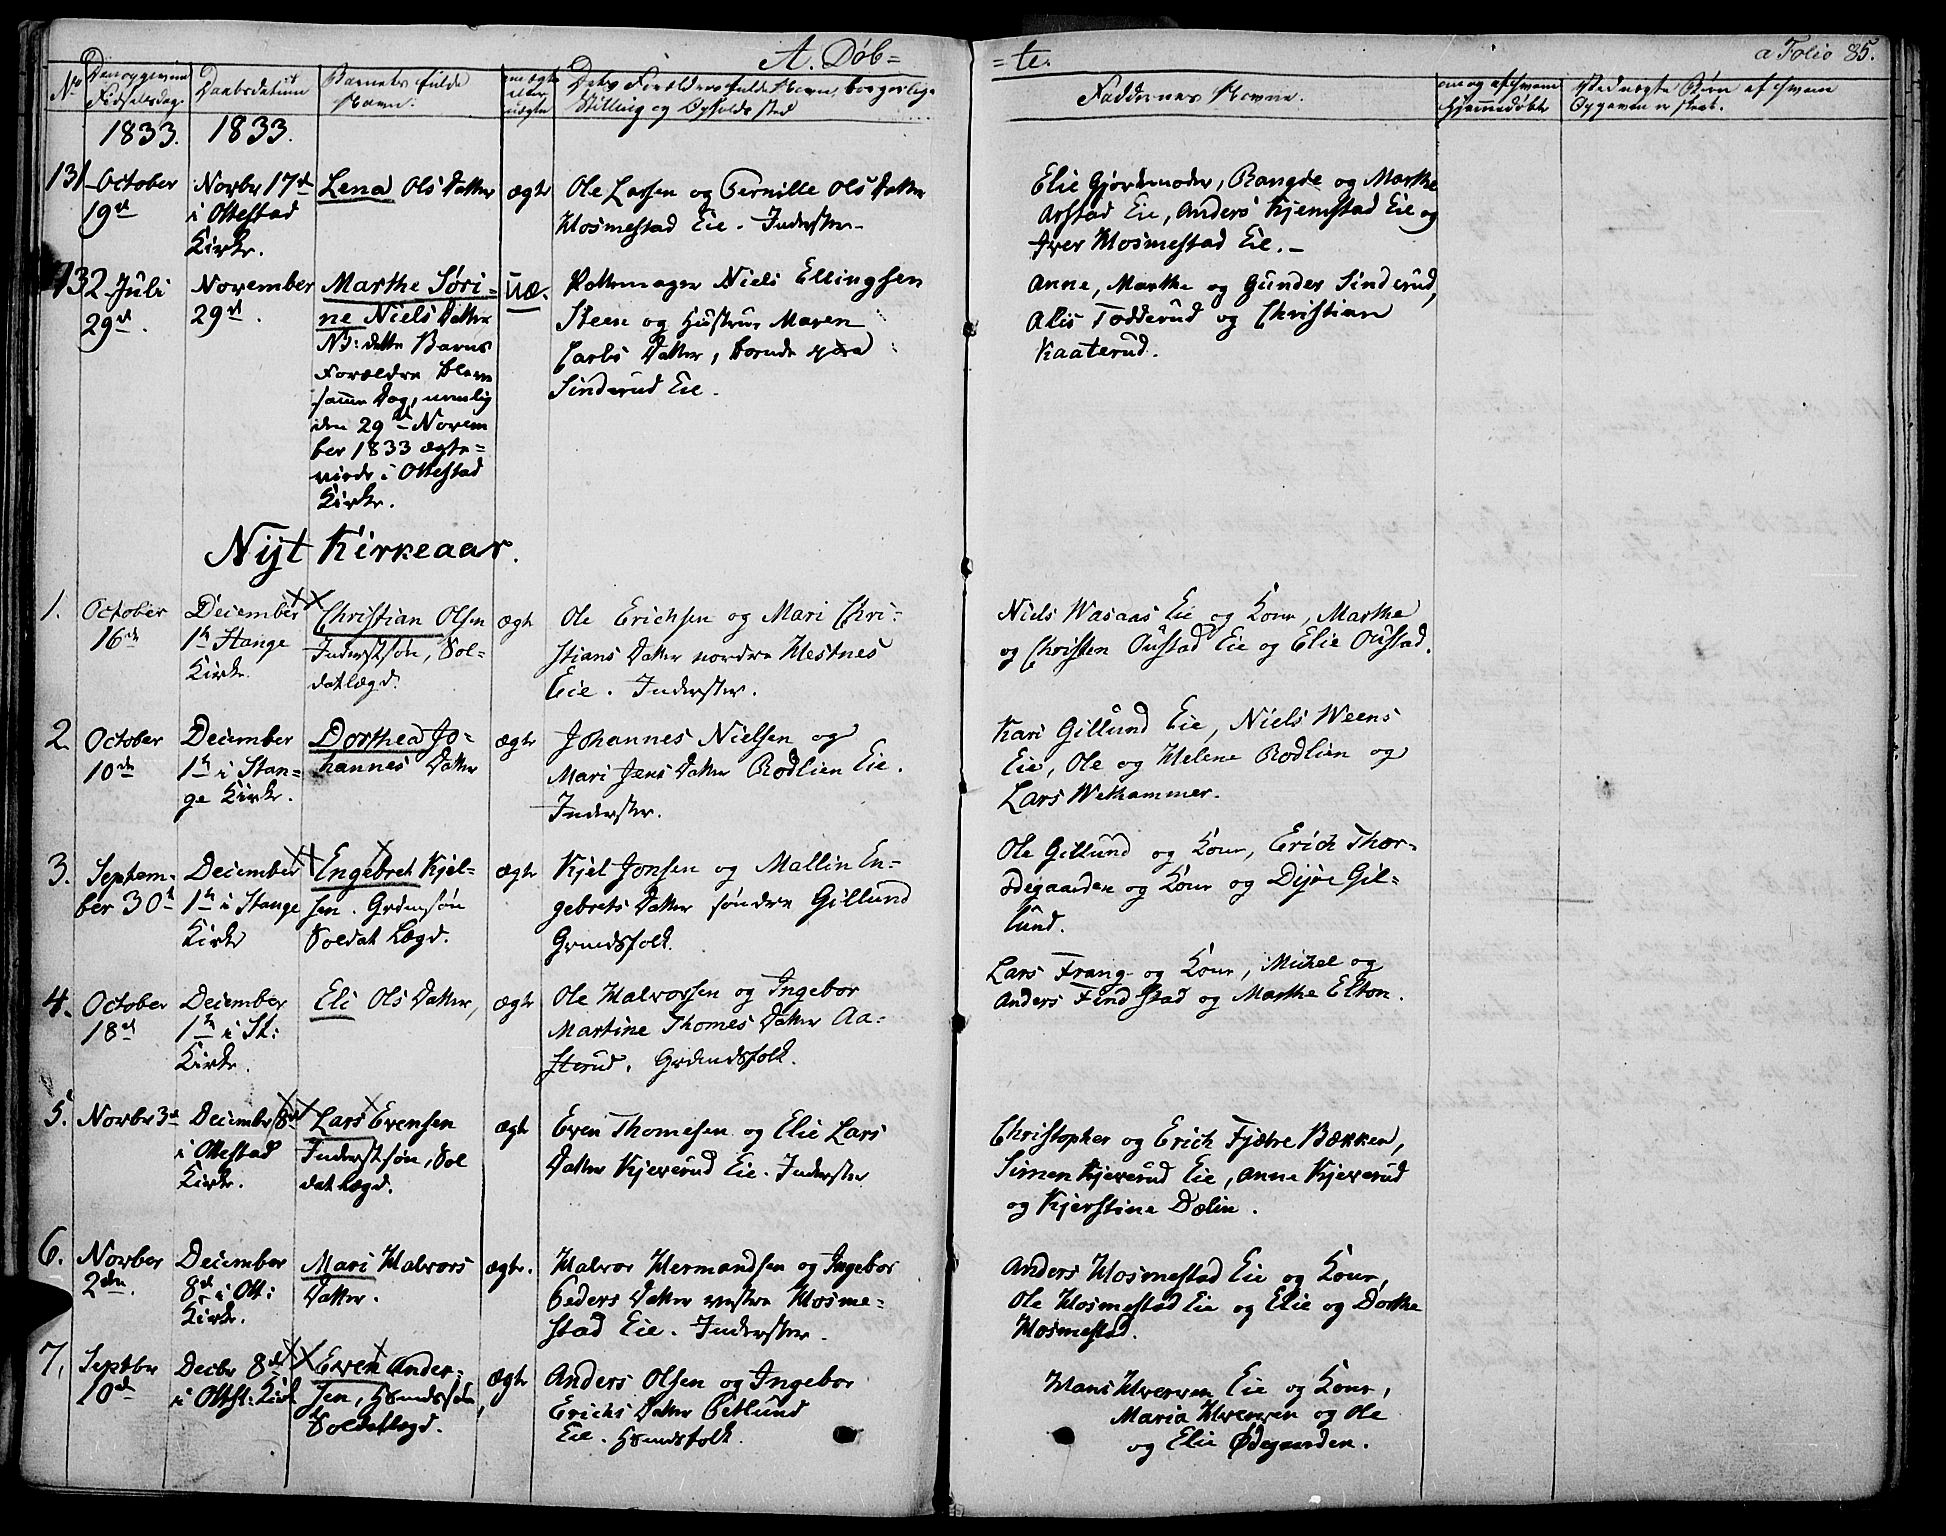 A. Døb=
=te.
a Folio 85.
No
Den opgivne
Fødselsdag.
Daabsdatum
Barnets fulde
Navn.
om ægte
eller
uægte
Dets Forældres fulde Navn, borgerlige
Stilling og Opholdssted
Faddernes Navne.
om og af hvem
hjemmedøbte
Ved uægte Børn af hvem
Opgaven er skeet.
1833.
1833.
131
October
19de
Novbr 17de
i Ottestad
Kirke.
Lena Ols Datter
ægte
Ole Larsen og Pernille Ols Datter
Hosmestad Eie. Inderster.
Elie Gjordemoder, Rangde og Marthe
Arstad Eie, Anders Kjemstad Eie og
Iver Hosmestad Eie.
132
Juli
29de.
November
29de.
Marthe Søri-
ne Niels Datter
NB: dette Barns
Forældre bleve
samme Dag, nemlig
den 29de Novem
ber 1833 ægte=
viede i Ottestad
Kirke.
uæ.
Pottemager Niels Ellingsen
Steen og Hustrue Maren
Carls Datter, boende
Sinderud Eie.
Anne, Marthe og Gunder Sinderud,
Alis Tødderud og Christian
Kaaterud.
Nyt Kirkeaar.
1.
October
16de
December
1te Stange
Kirke.
Christian Olsen
Inderstsøn, Sol-
datlægd.
ægte
Ole Erichsen og Mari Chri-
stians Datter nordre Hestnes
Eie. Inderster.
Niels Wasaas Eie og Kone, Marthe
og Christen Oustad Eie og Elie Oustad.
2.
October
10de
December
1te i Stan-
ge Kirke.
Dorthea Jo-
hannes Datter
ægte
Johannes Nielsen og
Mari Jens Datter Rodlien Eie.
Inderster.
Kari Gillund Eie, Niels Weens
Eie, Ole og Helene Rodlien og
Lars Wethammer.
3.
Septem-
ber 30te
December
1te i Stange
Kirke
Engebret Kjel-
sen. Grdmsøn
Soldat Lægd.
ægte
Kjel Jonsen og Mallin En-
gebrets Datter søndre Gillund
Grmdsfolk.
Ole Gillund og Kone, Erich Thor-
ødegaarden og Kone og Dijre Gil-
lund.
4.
October
18de
December
1te i St:
Kirke.
Eli Ols Datter,
ægte
Ole Halvorsen og Ingebor
Martine Thomes Datter Aa-
sterud. Grdmdsfolk.
Lars Frang og Kone, Michel og
Anders Findstad og Marthe Elton.
5.
Novbr 3de
Decembr 8de
i Ottestad
Kirke.
Lars Evensen
Inderstsøn, Sol
datlægd.
ægte
Even Thomesen og Elie Lars
Datter Kjeverud Eie. Inderster
Christopher og Erich Fjætre Bækken,
Simen Kjeverud Eie, Anne Kjeverud
og Kjerstine Dælin.
6.
Novber
2den.
December
8de i Ott:
Kirke.
Mari Halvors
Datter.
ægte.
Halvor Hermandsen og Ingebor
Peders Datter vestre Hosme-
stad Eie. Inderster.
Anders Hosmestad Eie og Kone,
Ole Hosmestad Eie og Elie og Dorthe
Hosmestad.
7.
Septbr
10de
Decbr 8de
i Ottst: Kirk
Even Ander-
sen, Hsmdssøn,
Soldatlægd.
ægte
Anders Olsen og Ingebor
Erichs Datter Østlund
Eie. Hsmdsfolk.
Hans Hverven Eie og Kone,
Maria Hverven og Ole
og Elie Ødegaarden.